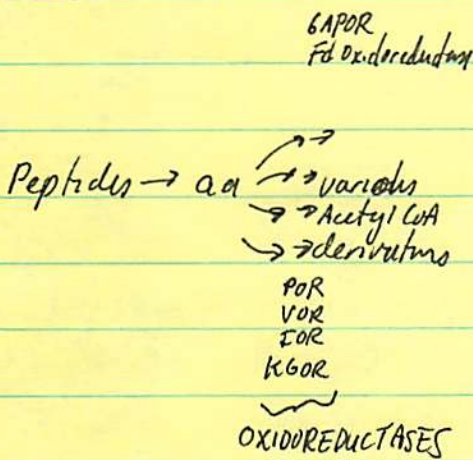 GAPOR
Fd Oxidoreductase
Peptides → aa → →
→ → various
→ → Acetyl CoA
→ → derivatives
POR
VOR
IOR
KGOR
OXIDOREDUCTASES